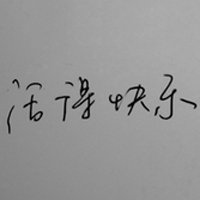 活得快乐